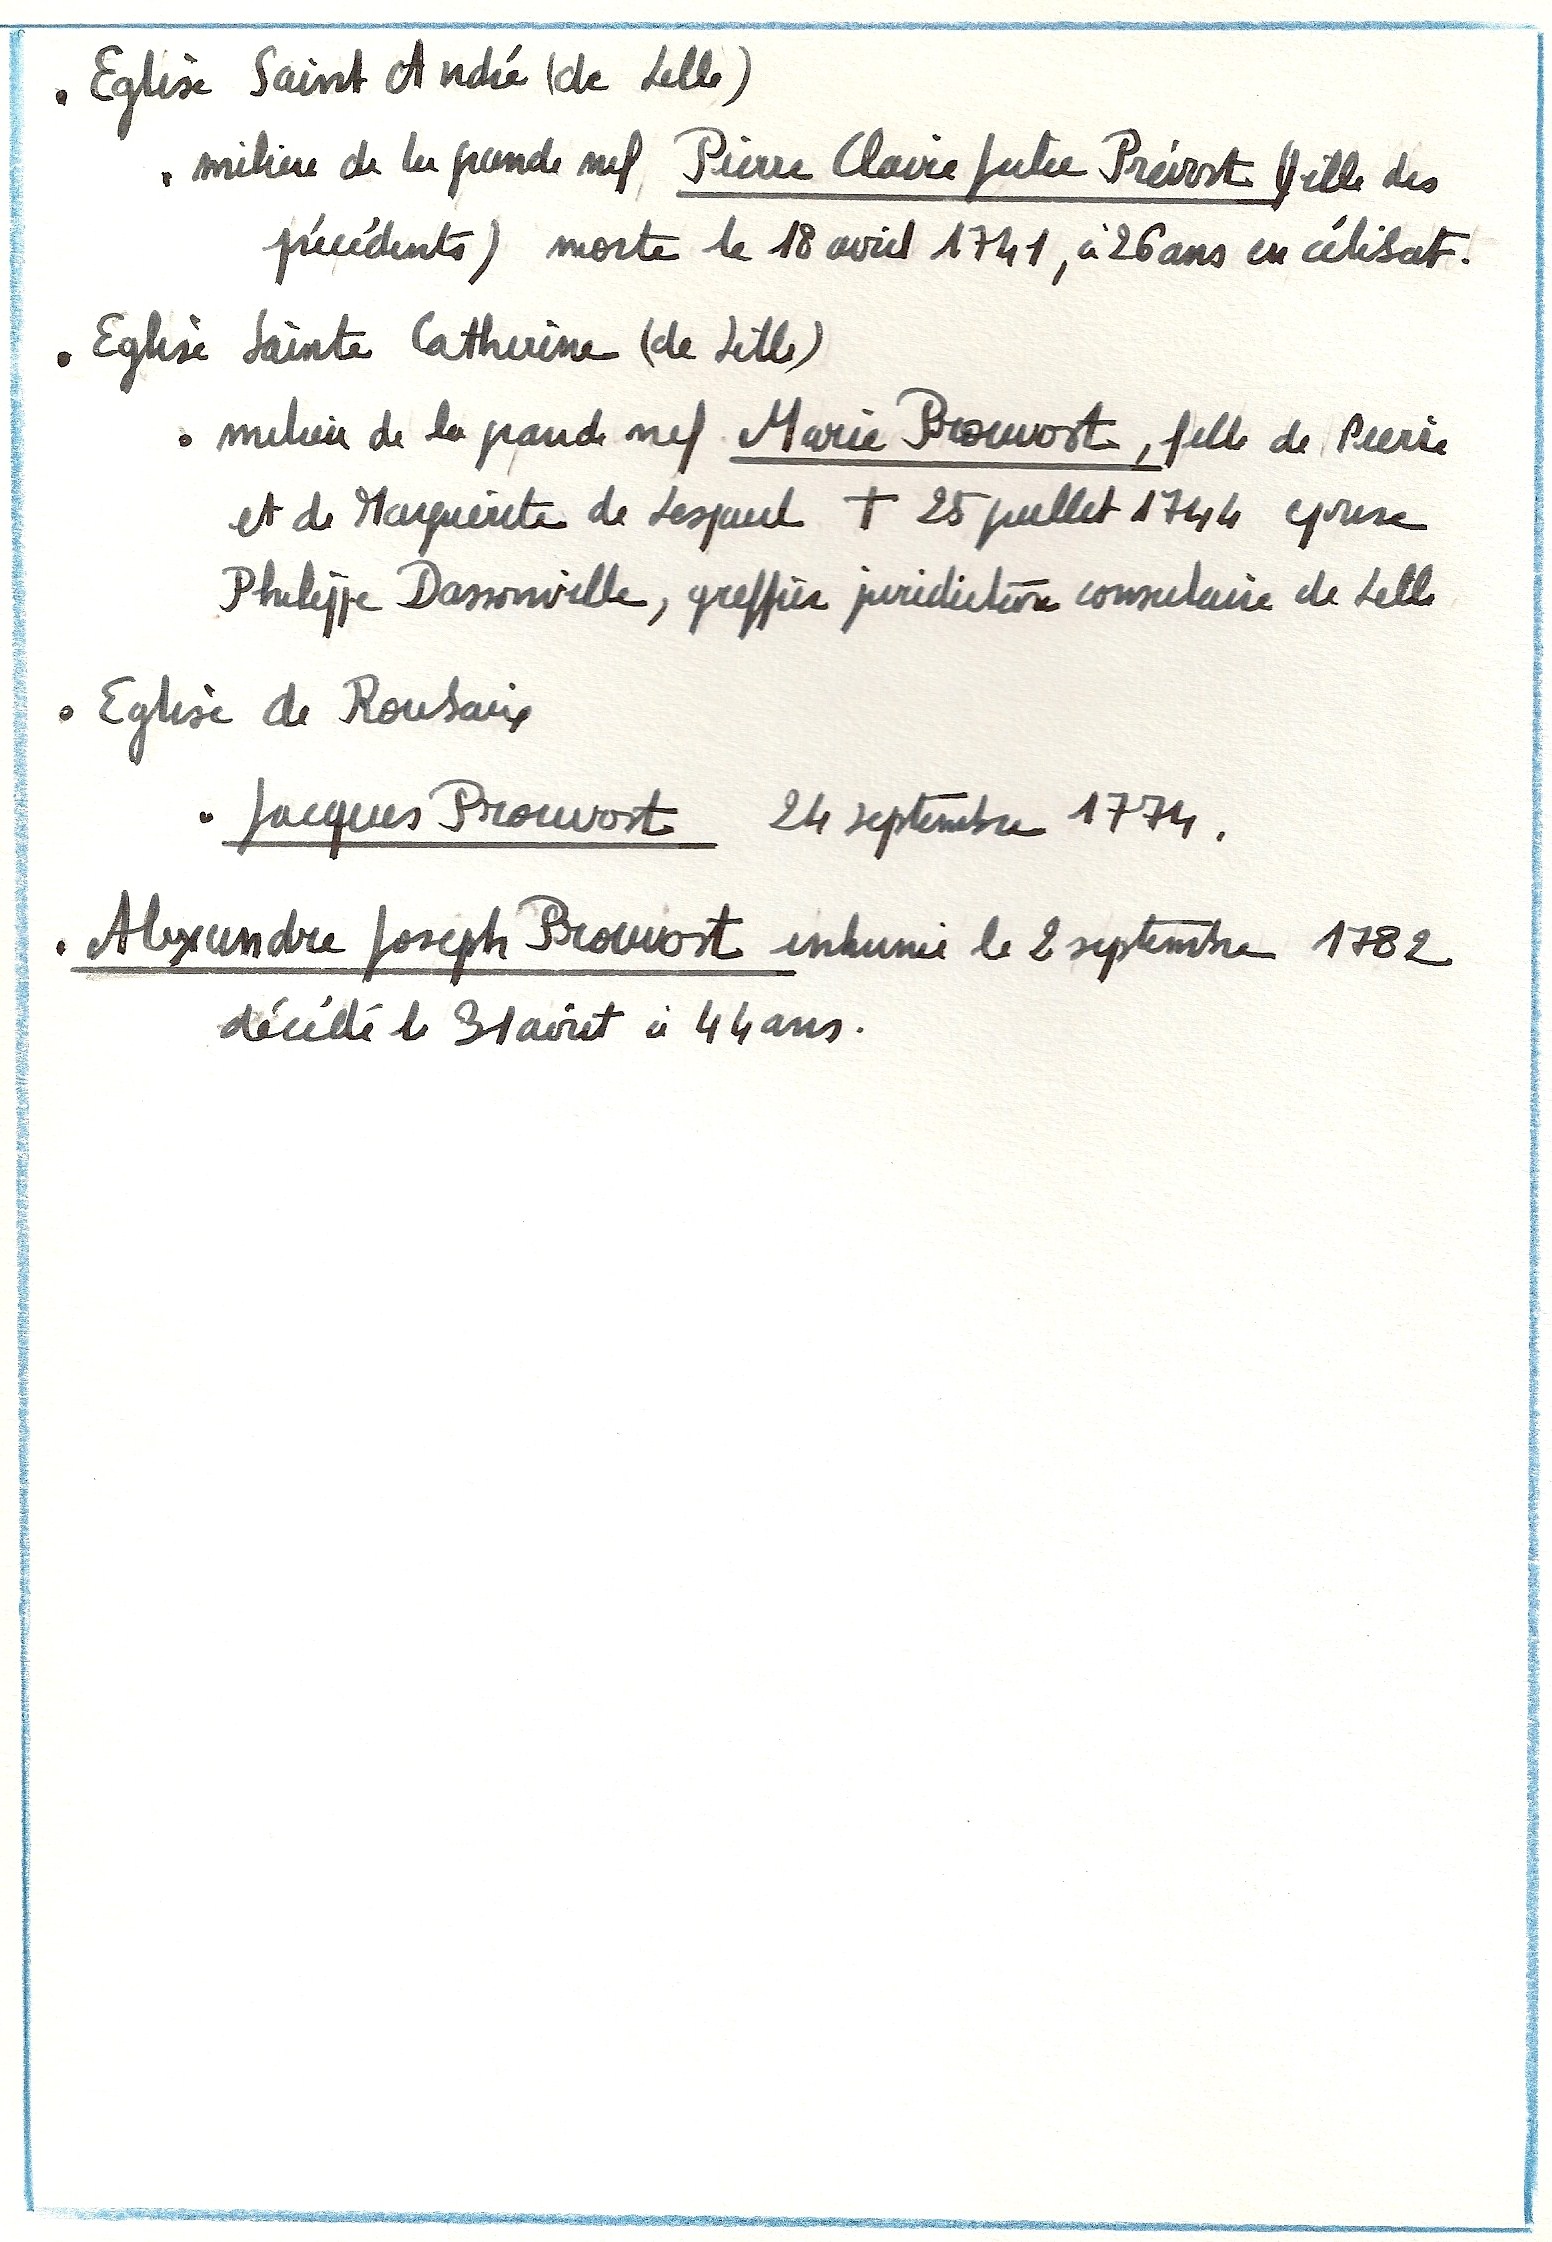 . Eglise Saint André (de Lille)
. milieu de la grande nef Pierre Claire Julie Prévost (fille des
précédents) morte le 18 avril 1741, à 26 ans en célibat.
. Eglise Sainte Catherine (de Lille)
. milieu de la grande nef Marie Prouvost, fille de Pierre
et de Marguerite de Lespaul † 25 juillet 1744 epouse
Philippe Dassonville, greffier juridiction consulaire de Lille
. Eglise de Roubaix
. Jacques Prouvost 24 septembre 1774.
. Alexandre Joseph Prouvost inhumé le 2 septembre 1782
décédé le 31 août à 44 ans.